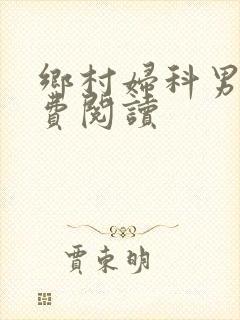 鄉村婦科男
費閱讀
賈束明